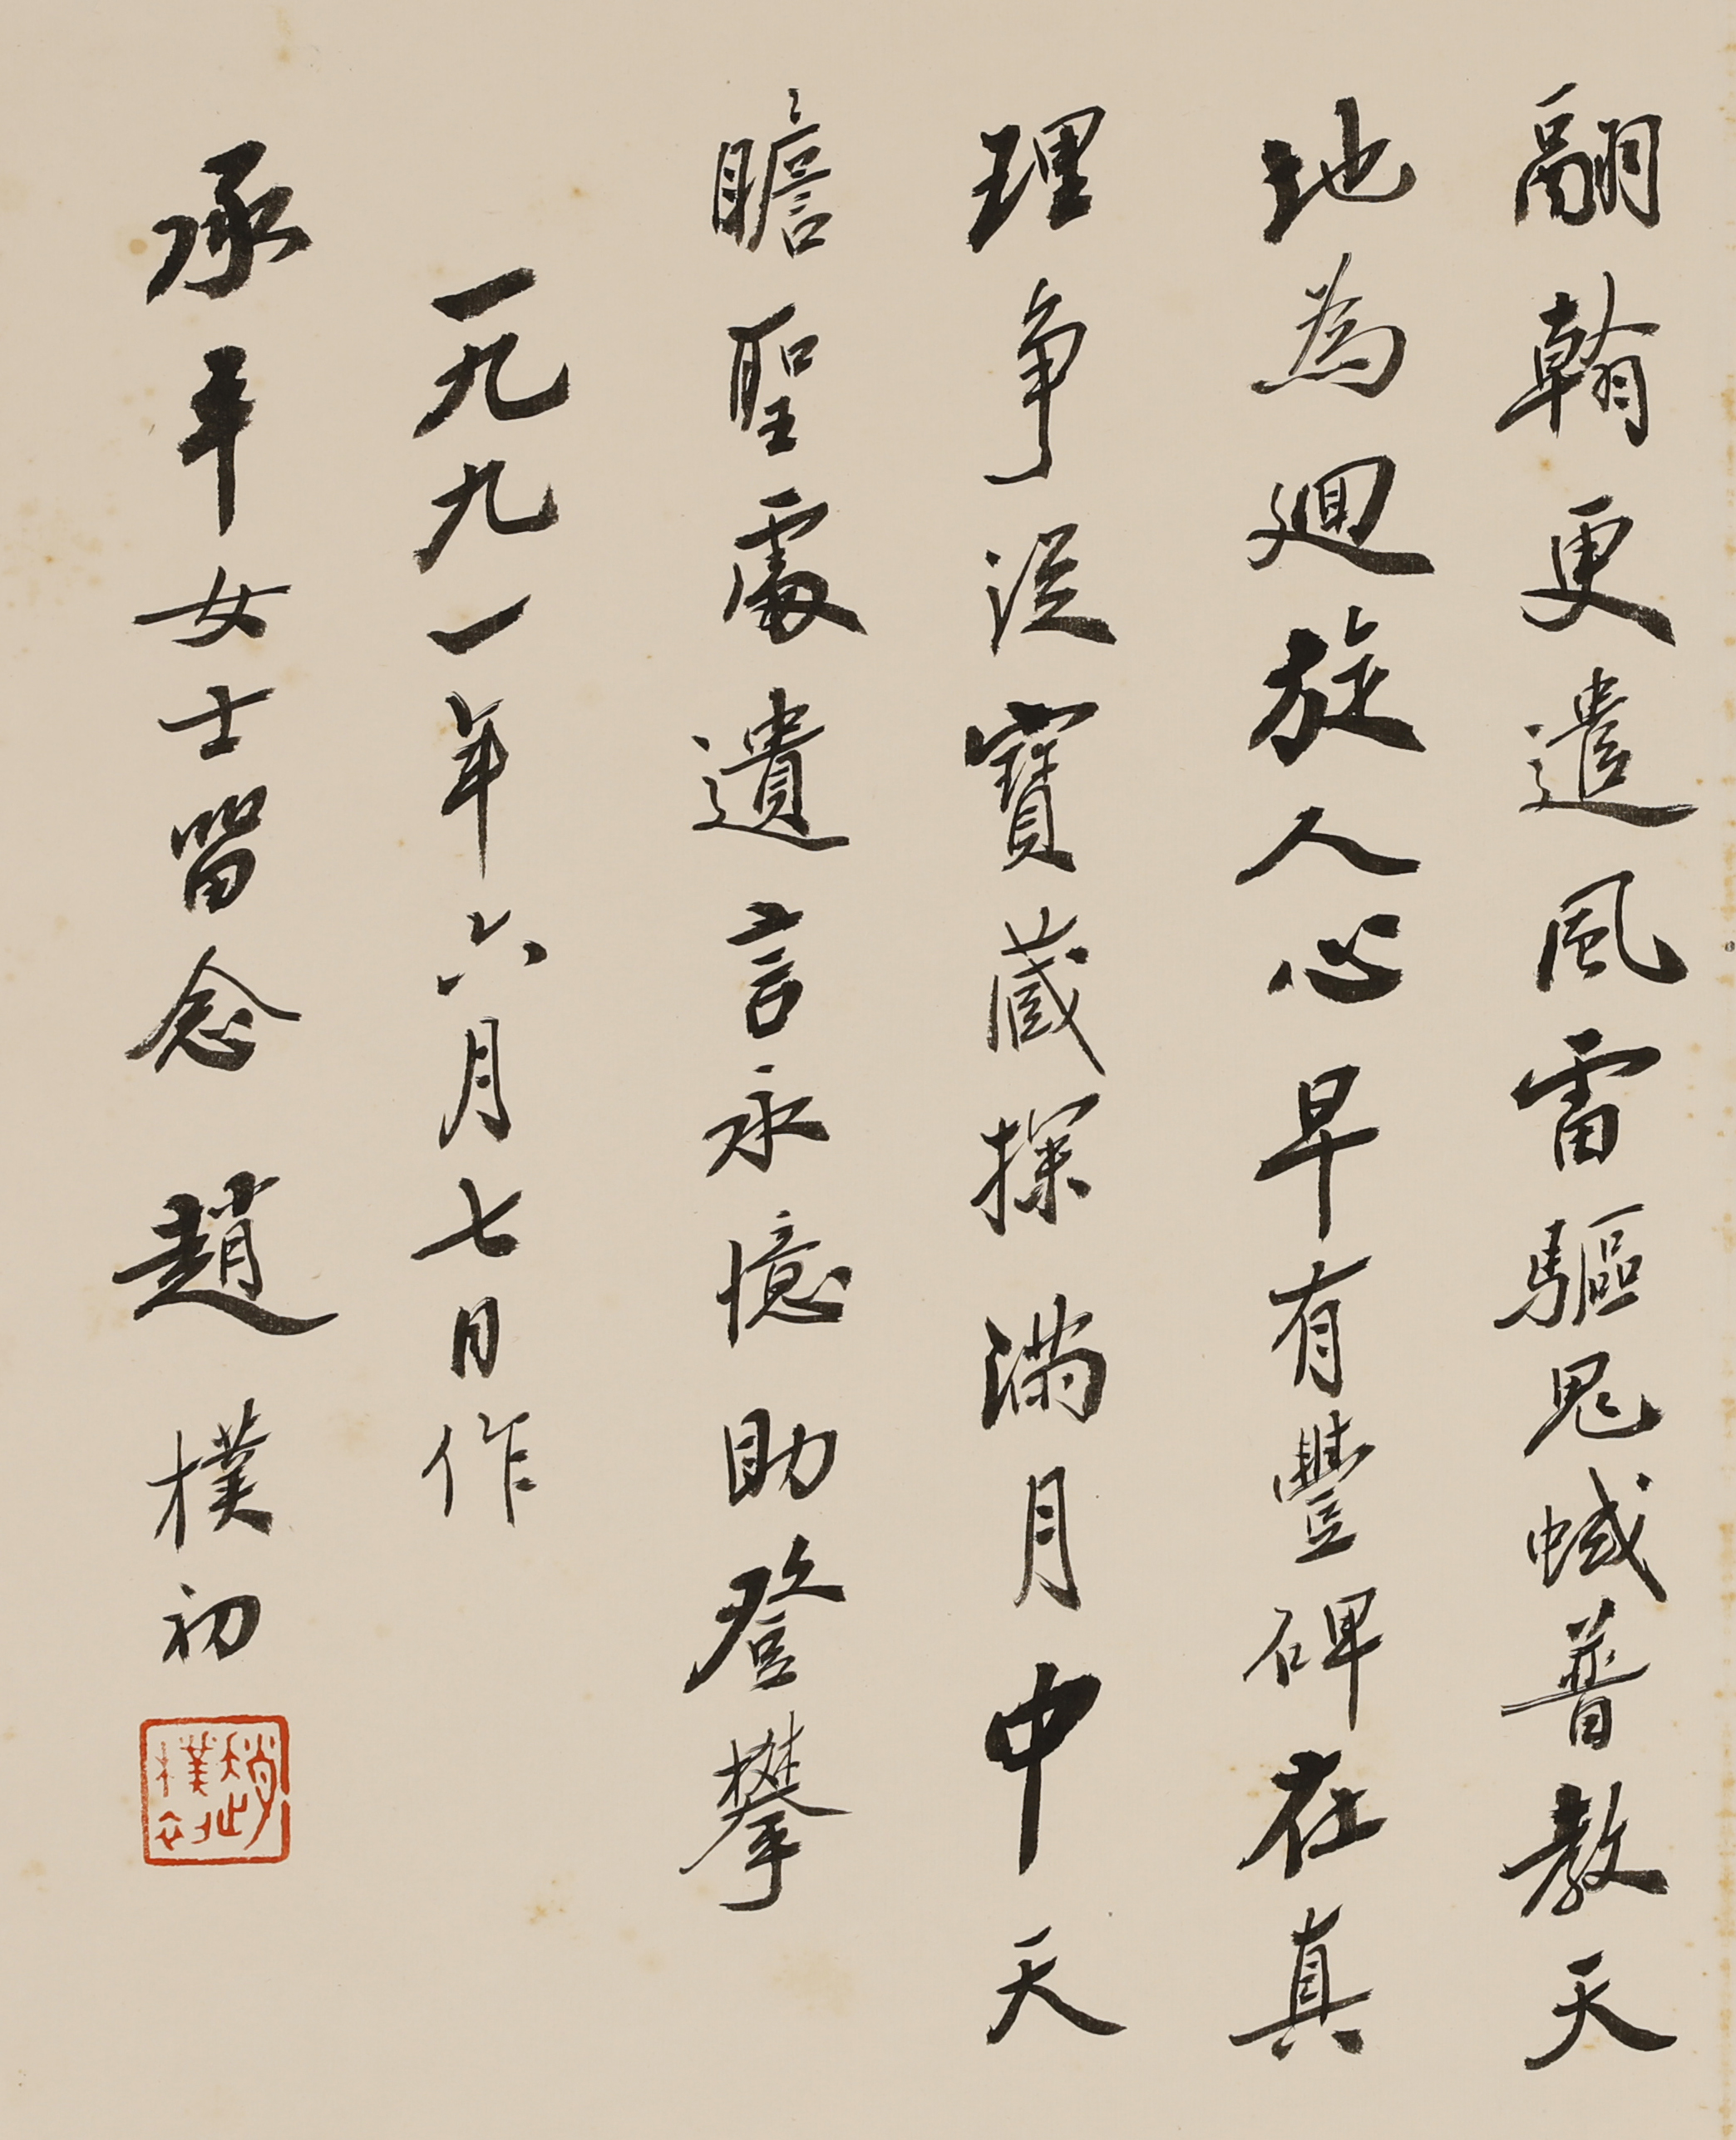 翮翰更遣風雷驅鬼蜮普教天
地為迴旋人心早有豐碑在真
理争從寶藏探滿月中天
瞻聖處遺言永憶助登攀
一九九一年六月七日作
承年女士留念 趙樸初
趙樸初